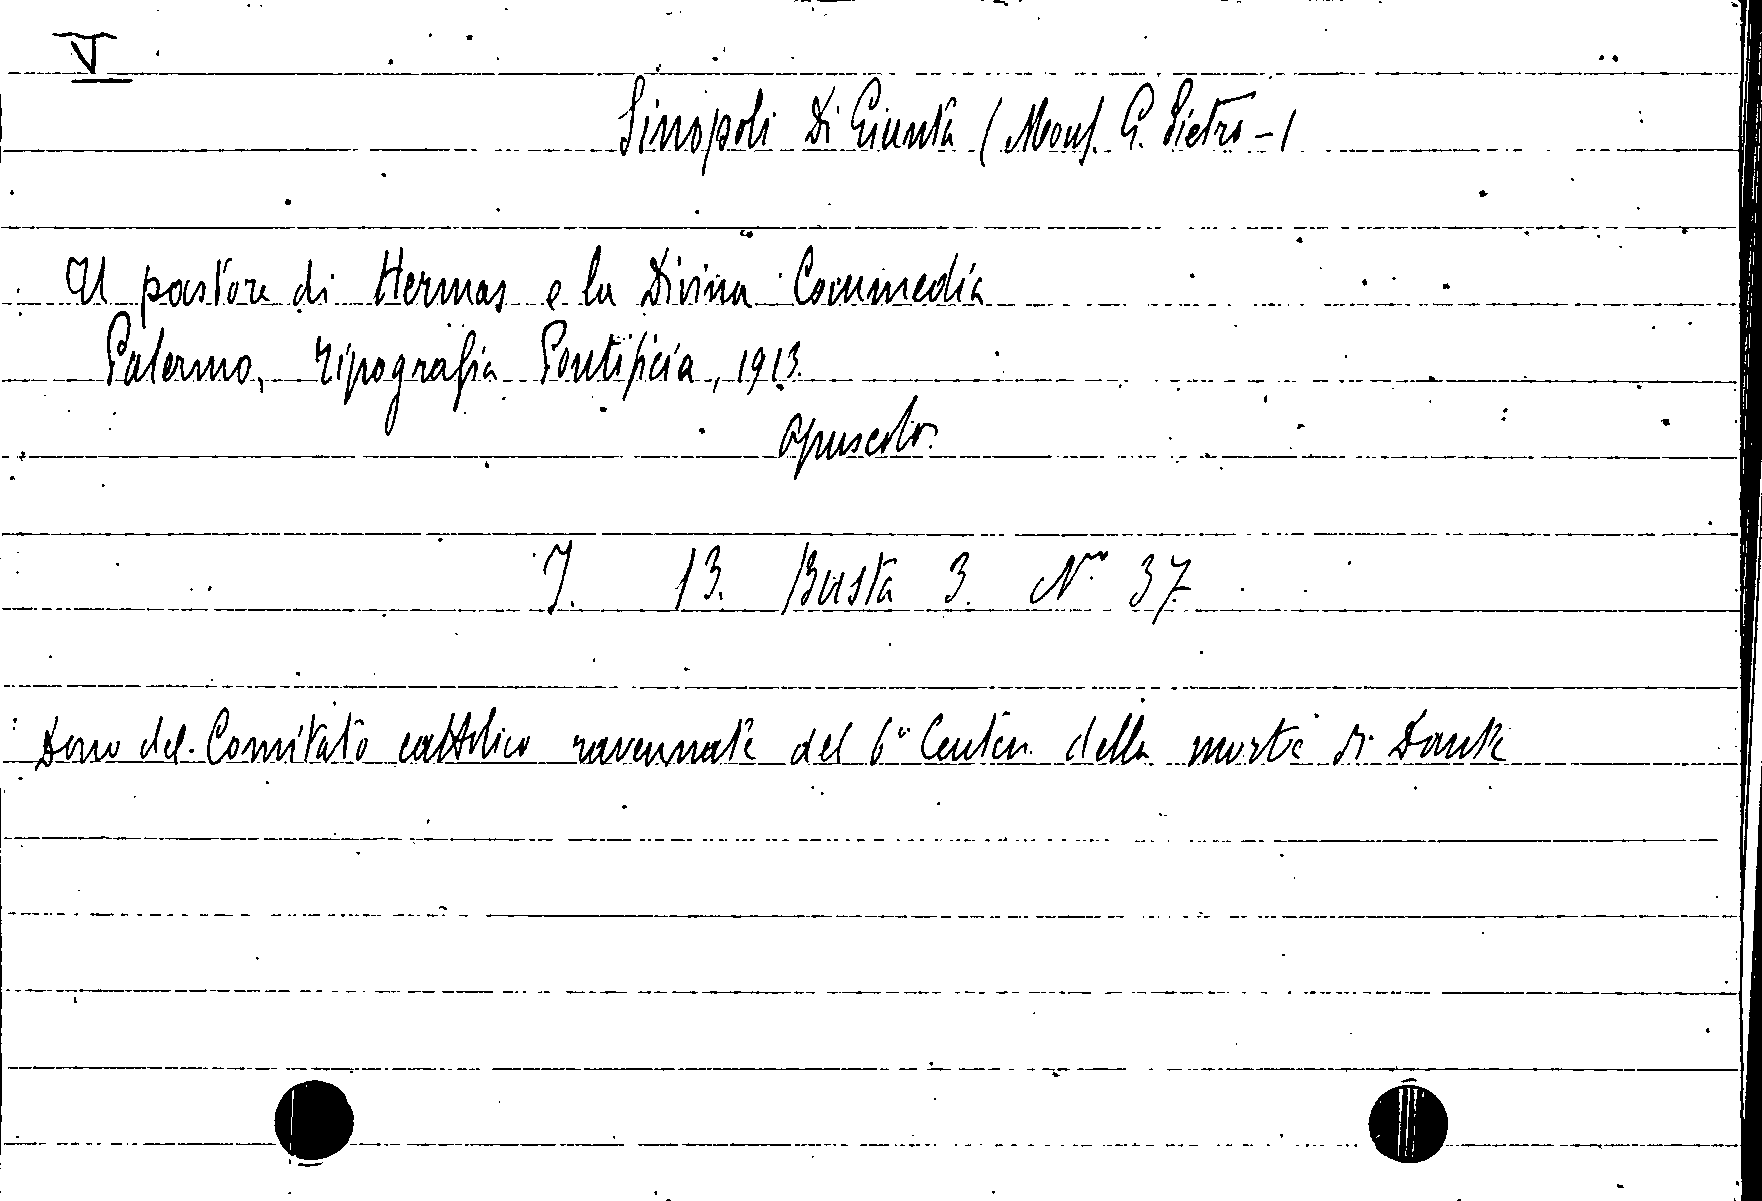 V
Sinopoli Di Giunta (Mons. G. Pietro-)
Il pastore di Hermas e la Divina Commedia
Palermo, tipografia Pontificia, 1913.
opuscolo.
I. 13. Busta 3. No 37.
Dono del Comitato cattolico ravennate del 6o Centen. della morte di Dante